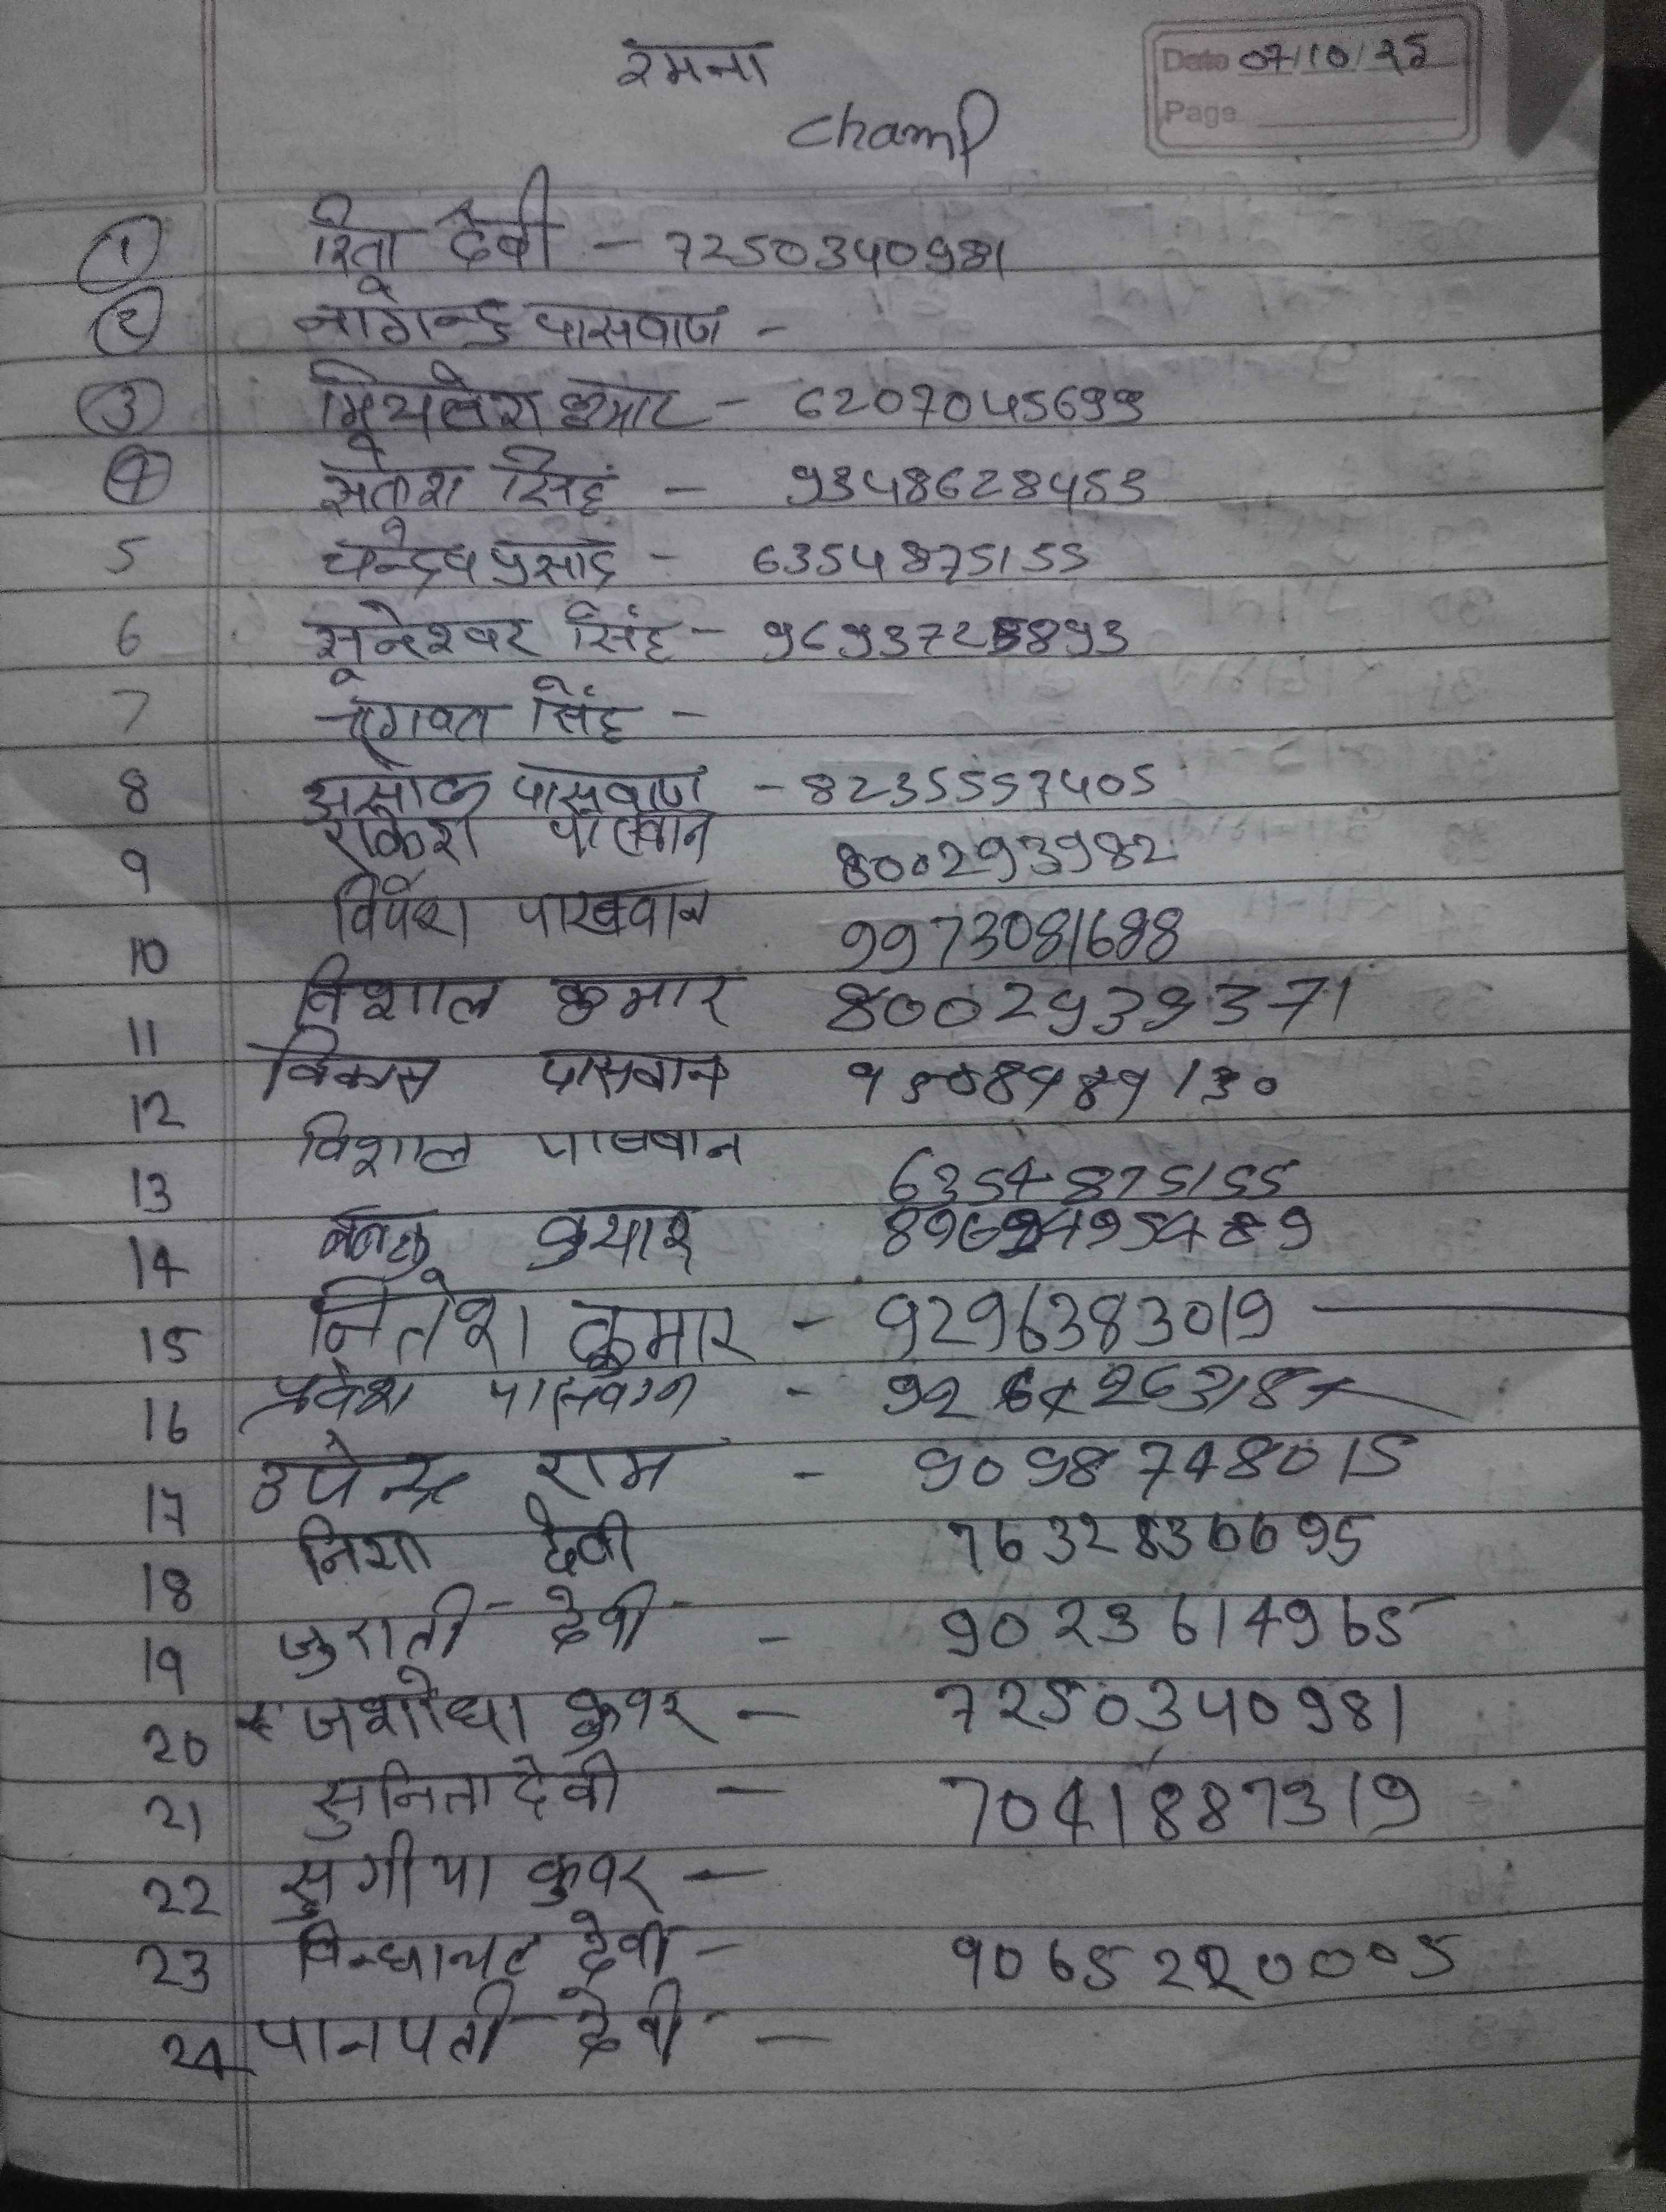 रमना
Champ
Date 07/10/25
Page
1 रितू देवी - 7250340981
2 नागेन्द्र पासवाण -
3 मिथलेश कुमार - 6207045699
4 संतोश सिंह - 9348628453
5 चन्द्रदेव प्रसाद - 6354875155
6 भूनेश्वर सिंह - 9693725893
7 सिंह -
8 असोक पासवाण - 8235557405
9 राकेश पासवान 800293982
10 विपेश पासवान 9973081688
11 विशाल कुमार 8002939371
12 विकास पासवान 9508989130
13 विशाल पासवान 6354875155
14 कुमार
15 नितेश कुमार - 9296383019
16 प्रवेश पासवान -
17 उपेन्द्र राम - 9098748015
18 निशा देवी 7632836695
19 जुराती देवी - 9023614965
20 जशोधा कुवर - 7250340981
21 सुनिता देवी - 7041887319
22 सुगीया कुवर -
23 विन्धाचल देवी - 9065220005
24 पानपती देवी -